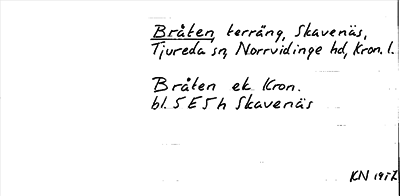 Bråten, terräng, Skavenäs,
Tjureda sn, Norrvidinge hd, Kron. l.
Bråten ek Kron.
bl. 5 E 5 h Skavenäs
KN 1957